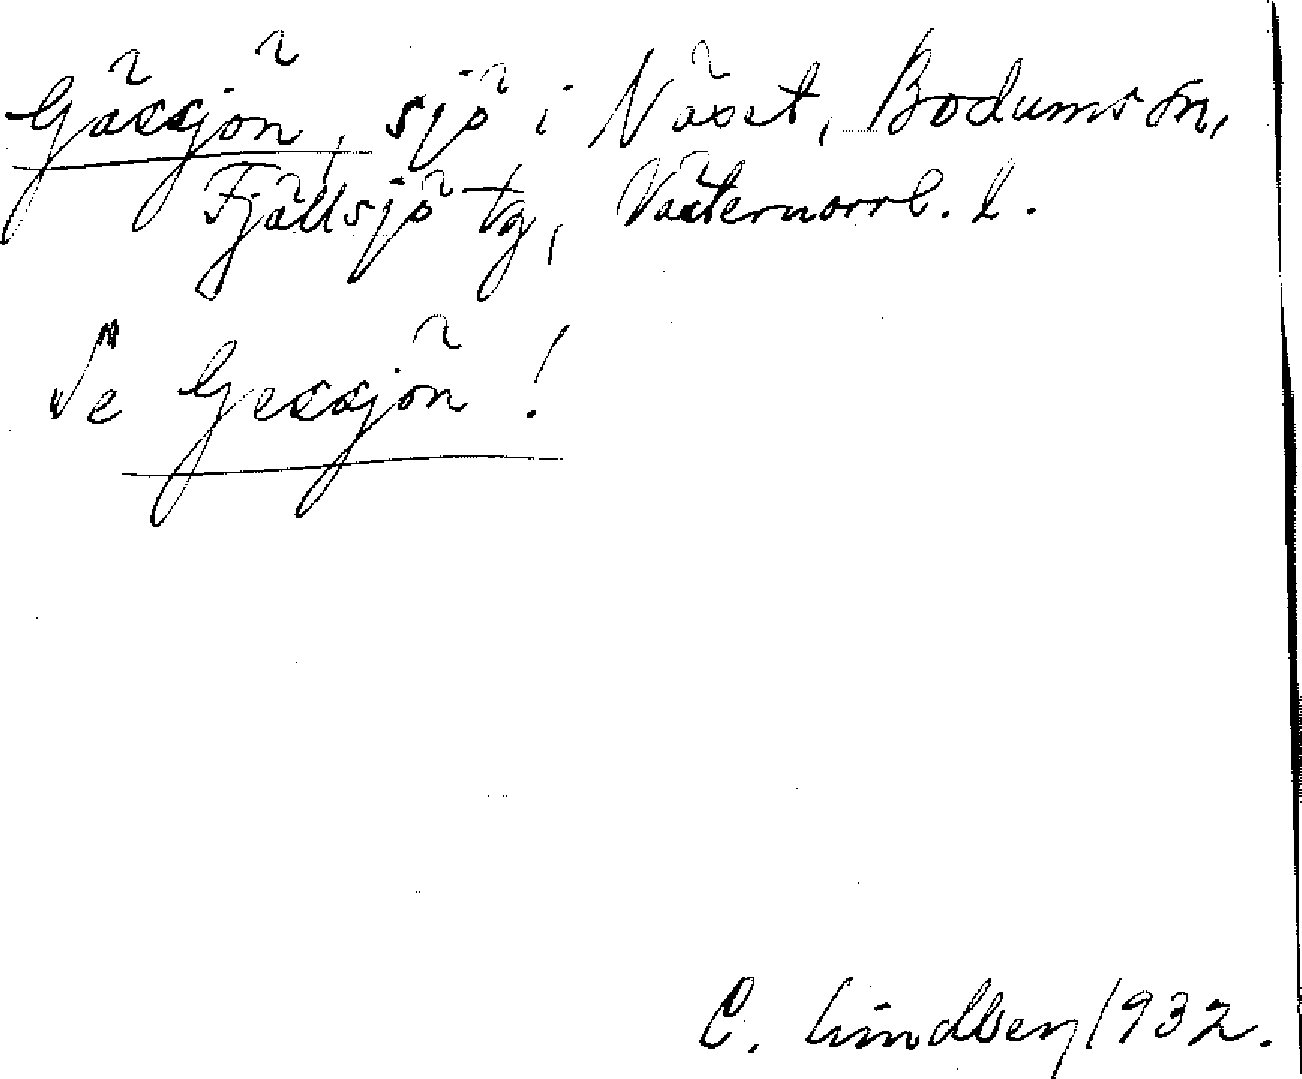 Gässjön, sjö i Näset, Bodums sn,
Fjällsjö tg, Västernorrl. l.
Se Gessjön!
C. Lindberg 1932.